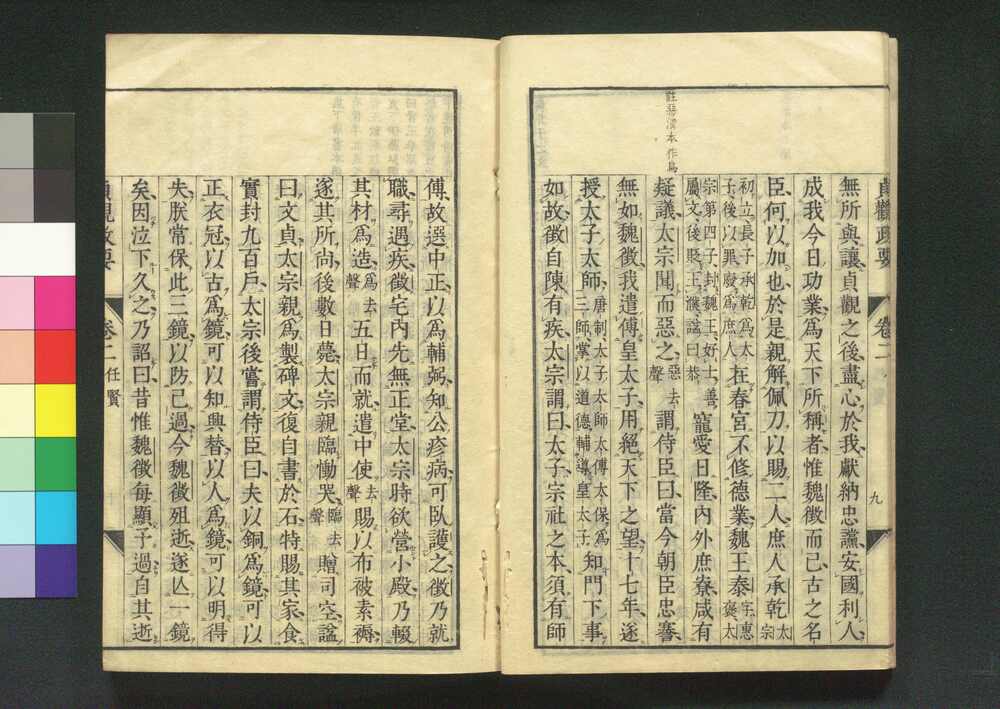 貞觀政要 卷二 九
無所與讓貞觀之後盡心於我獻納忠讜安國利人
成我今日功業爲天下所稱者惟魏徵而已古之名
臣何以加也於是親解佩刀以賜二人庶人承乾太宗
初立長子承乾爲太子後以罪廢爲庶人在春宮不修德業魏王泰字惠褒太
宗第四子封魏王好士善屬文後貶王濮謚曰恭寵愛日隆內外庶寮咸有
註惡本作烏
疑議太宗聞而惡之惡去聲謂侍臣曰當今朝臣忠謇
無如魏徵我遣傅皇太子用絕天下之望十七年遂
授太子太師唐制太子太師太傅太保爲三師掌以道德輔導皇太子知門下事
如故徵自陳有疾太宗謂曰太子宗社之本須有師
傅故選中正以爲輔弼知公疹病可臥護之徵乃就
職尋遇疾徵宅內先無正堂太宗時欲營小殿乃輟
其材爲造爲去聲五日而就遣中使去聲賜以布被素褥
遂其所尚後數日薨太宗親臨慟哭臨去聲贈司空謚
曰文貞太宗親爲製碑文復自書於石特賜其家食
實封九百戶太宗後嘗謂侍臣曰夫以銅爲鏡可以
正衣冠以古爲鏡可以知興替以人爲鏡可以明得
失朕常保此三鏡以防己過今魏徵殂逝遂亾一鏡
矣因泣下久之乃詔曰昔惟魏徵每顯予過自其逝
貞觀政要 卷二任賢